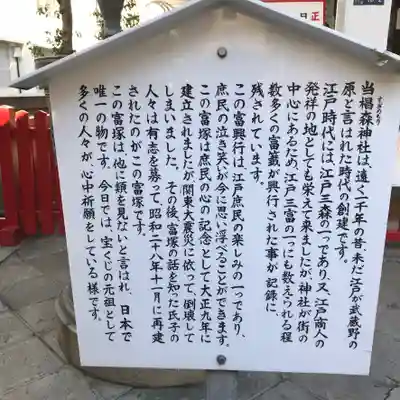 当椙森神社は、遠く一千年の昔、未だ江戸が武蔵野の
すぎのもり
原と言はれた時代の創建です。
江戸時代には、江戸三森の一つであり、又、江戸商人の
発祥の地としても栄えて来ましたが、神社が街の
中心にあるため、江戸三富の一つにも数えられる程
数多くの富籤が興行された事が記録に
残されています。
この富興行は、江戸庶民の楽しみの一つであり、
庶民の泣き笑いが今に思い浮べることができます。
この富塚は庶民の心の記念として大正九年に
建立されましたが関東大震災に依って、倒壊して
しまいました。その後、富塚の話を知った氏子の
人々は有志を募って、昭和二十八年十一月に再建
されたのがこの富塚です。
この富塚は他に類を見ないと言はれ、日本で
唯一の物です。今日では、宝くじの元祖として
多くの人々が、心中祈願をしている様です。
正